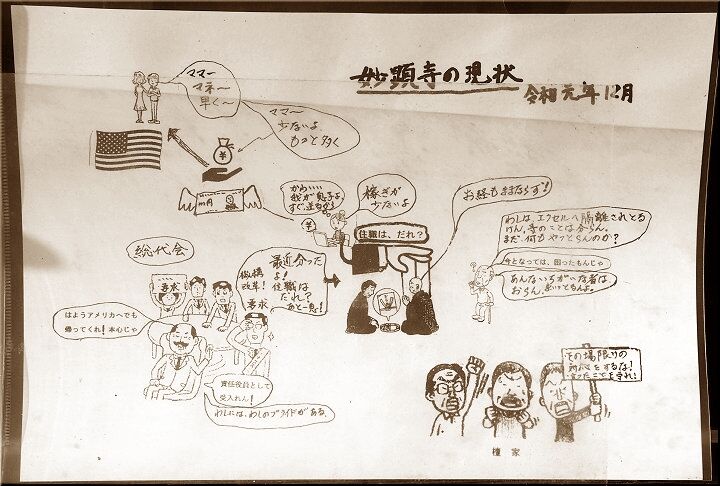 妙顕寺の現状
令和元年12月
ママー
マネー
早く〜
ママー
少ないよ
もっと多く
¥
m円
かわ……
我が息子よ
すぐ、送るから
¥
稼ぎが
少ないよ
お経もままならず!
住職は、だれ?
わしは、エクセルへ隔離されとる
けん、寺のことは分らん。
まだ、何もやっとらんのか?
今となっては、困ったもんじゃ
あんないちがいな者は
おらん。
総代会
要求
機構
改革!
要求
最近分った
よ!
住職は
だれ?
あと一息!
はようアメリカへでも
帰ってくれ!本心じゃ
責任役員として
受入れん!
わしには、わしのプライドがある。
その場限りの
対応をするな!
言ったことを守れ!
檀家